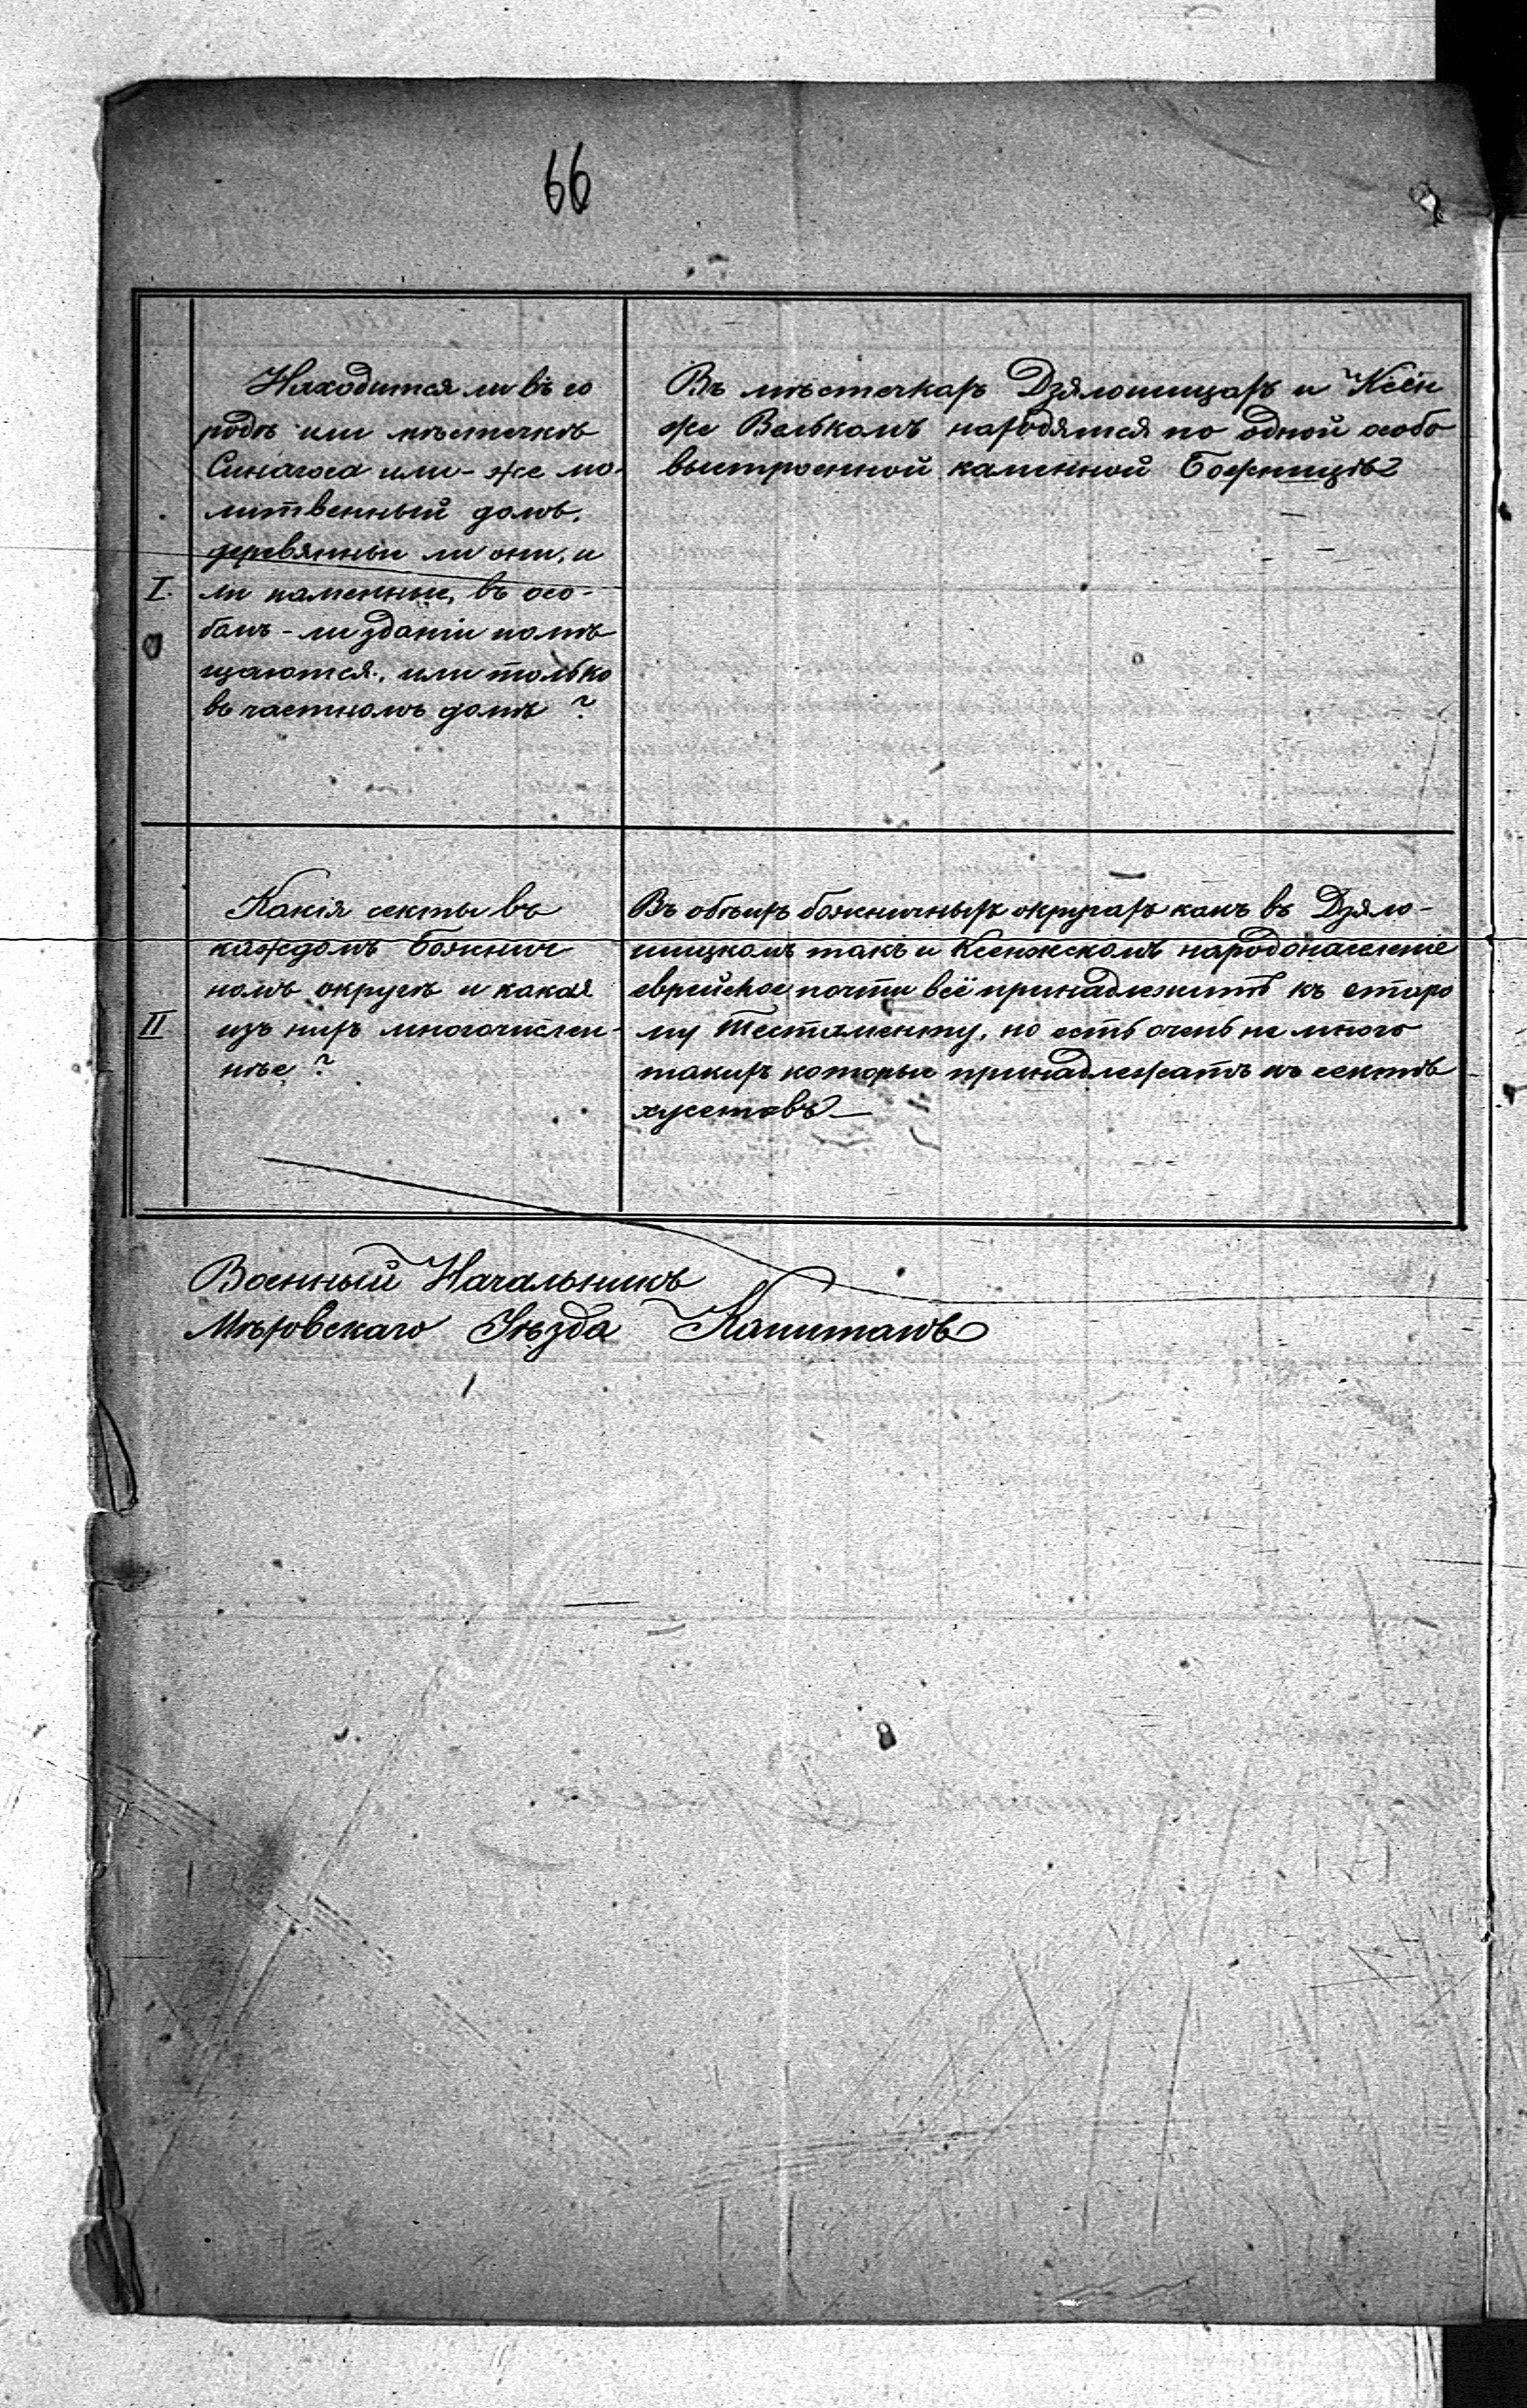 66
Находится ли въ го
родѣ или мѣстечкѣ
Синагога или-же мо-
литвенный домъ,
деревянные ли они, и
ли каменные, въ осо-
I.
бомъ-ли зданіи помѣ
щаются, или только
въ частномъ домѣ ?
Въ мѣстечкахъ Дзялошицахъ и Ксён
же Велькомъ находятся по одной особо
выстроенной каменной Божницѣ
Какія секты въ
каждомъ Божнич
номъ округѣ и какая
изъ нихъ многочислен-
II
нѣе ?
Въ обѣихъ божничныхъ округахъ какъ въ Дзяло-
шицкомъ такъ и Ксенжскомъ народонаселеніе
еврейское почти всё принадлежитъ къ старо
му Тестаменту, но есть очень не много
такихъ которые принадлежатъ къ сектѣ
хуситовъ
Военный Начальникъ
Мѣховскаго Уѣзда Капитанъ